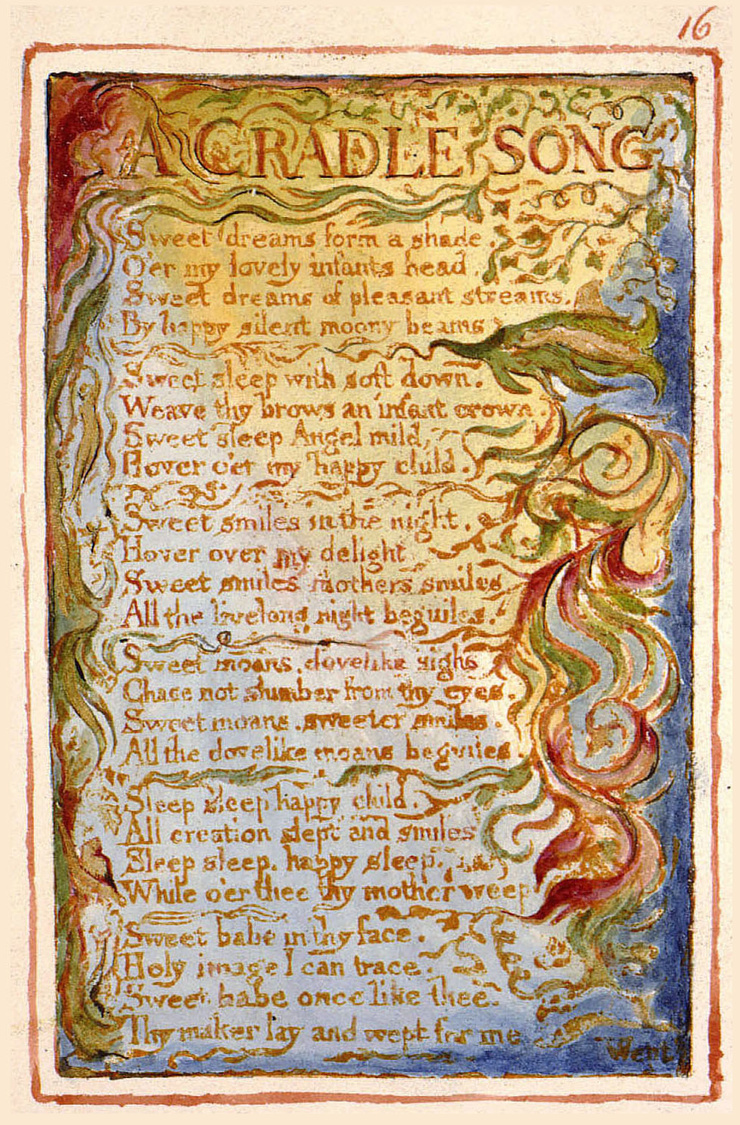 16
A CRADLE SONG
Sweet dreams form a shade,
O'er my lovely infants head.
Sweet dreams of pleasant streams,
By happy silent moony beams
Sweet sleep with soft down.
Weave thy brows an infant crown.
Sweet sleep Angel mild,
Hover o'er my happy child.
Sweet smiles in the night,
Hover over my delight
Sweet smiles Mothers smiles
All the livelong night beguiles.
Sweet moans, dovelike sighs
Chase not slumber from thy eyes.
Sweet moans, sweeter smiles
All the dovelike moans beguiles.
Sleep sleep happy child.
All creation slept and smiled
Sleep sleep, happy sleep,
While o'er thee thy mother weep
Sweet babe in thy face.
Holy image I can trace.
Sweet babe once like thee.
Thy maker lay and wept for me
Wept